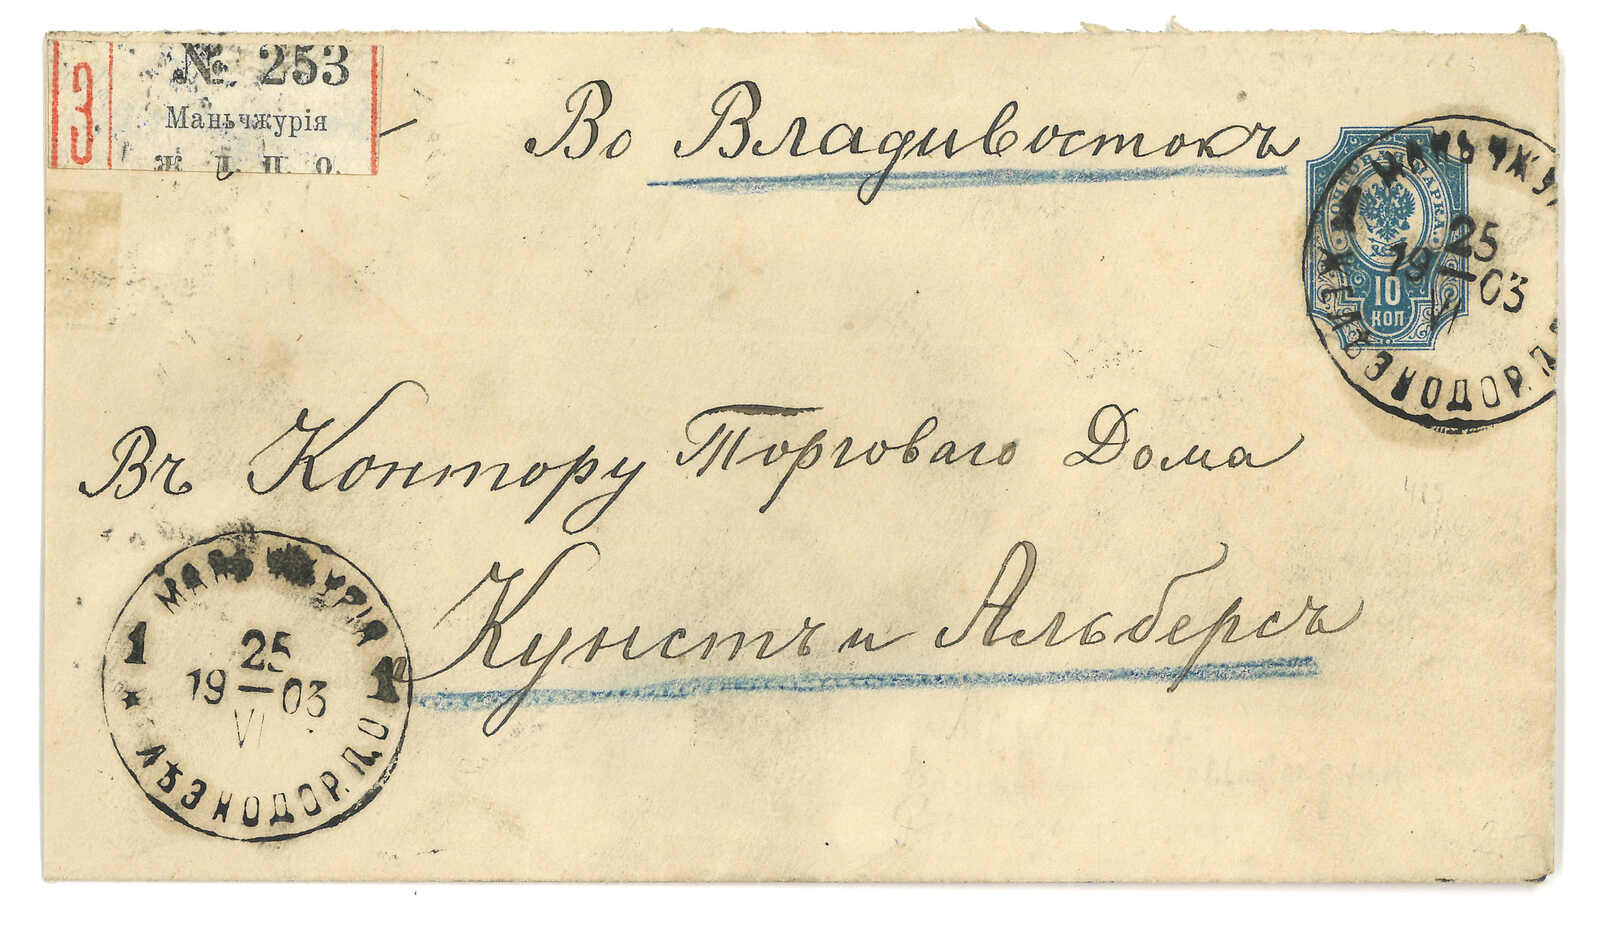 З
№ 253
Маньчжурія
ж. д. п. о.
Во Владивостокъ
ПОЧТОВАЯ МАРКА.
10
КОП
МАНЬЧЖУ
1
25
19 03
VI
ЖЕЛѢЗНОДОР. П.
Въ Контору Торговаго Дома
Кунстъ и Альберсъ
МАНЬЧЖУРІЯ
1 1
25
19 03
VI
ЛѢЗНОДОР. П. О